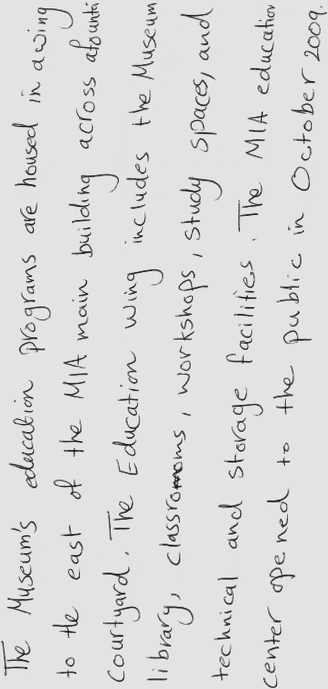 The Museum's education programs are housed in a wing
to the east of the MIA main building across a founti
courtyard. The Education wing includes the Museum
library, classrooms, workshops, study spaces, and
technical and storage facilities. The MIA education
center opened to the public in October 2009.